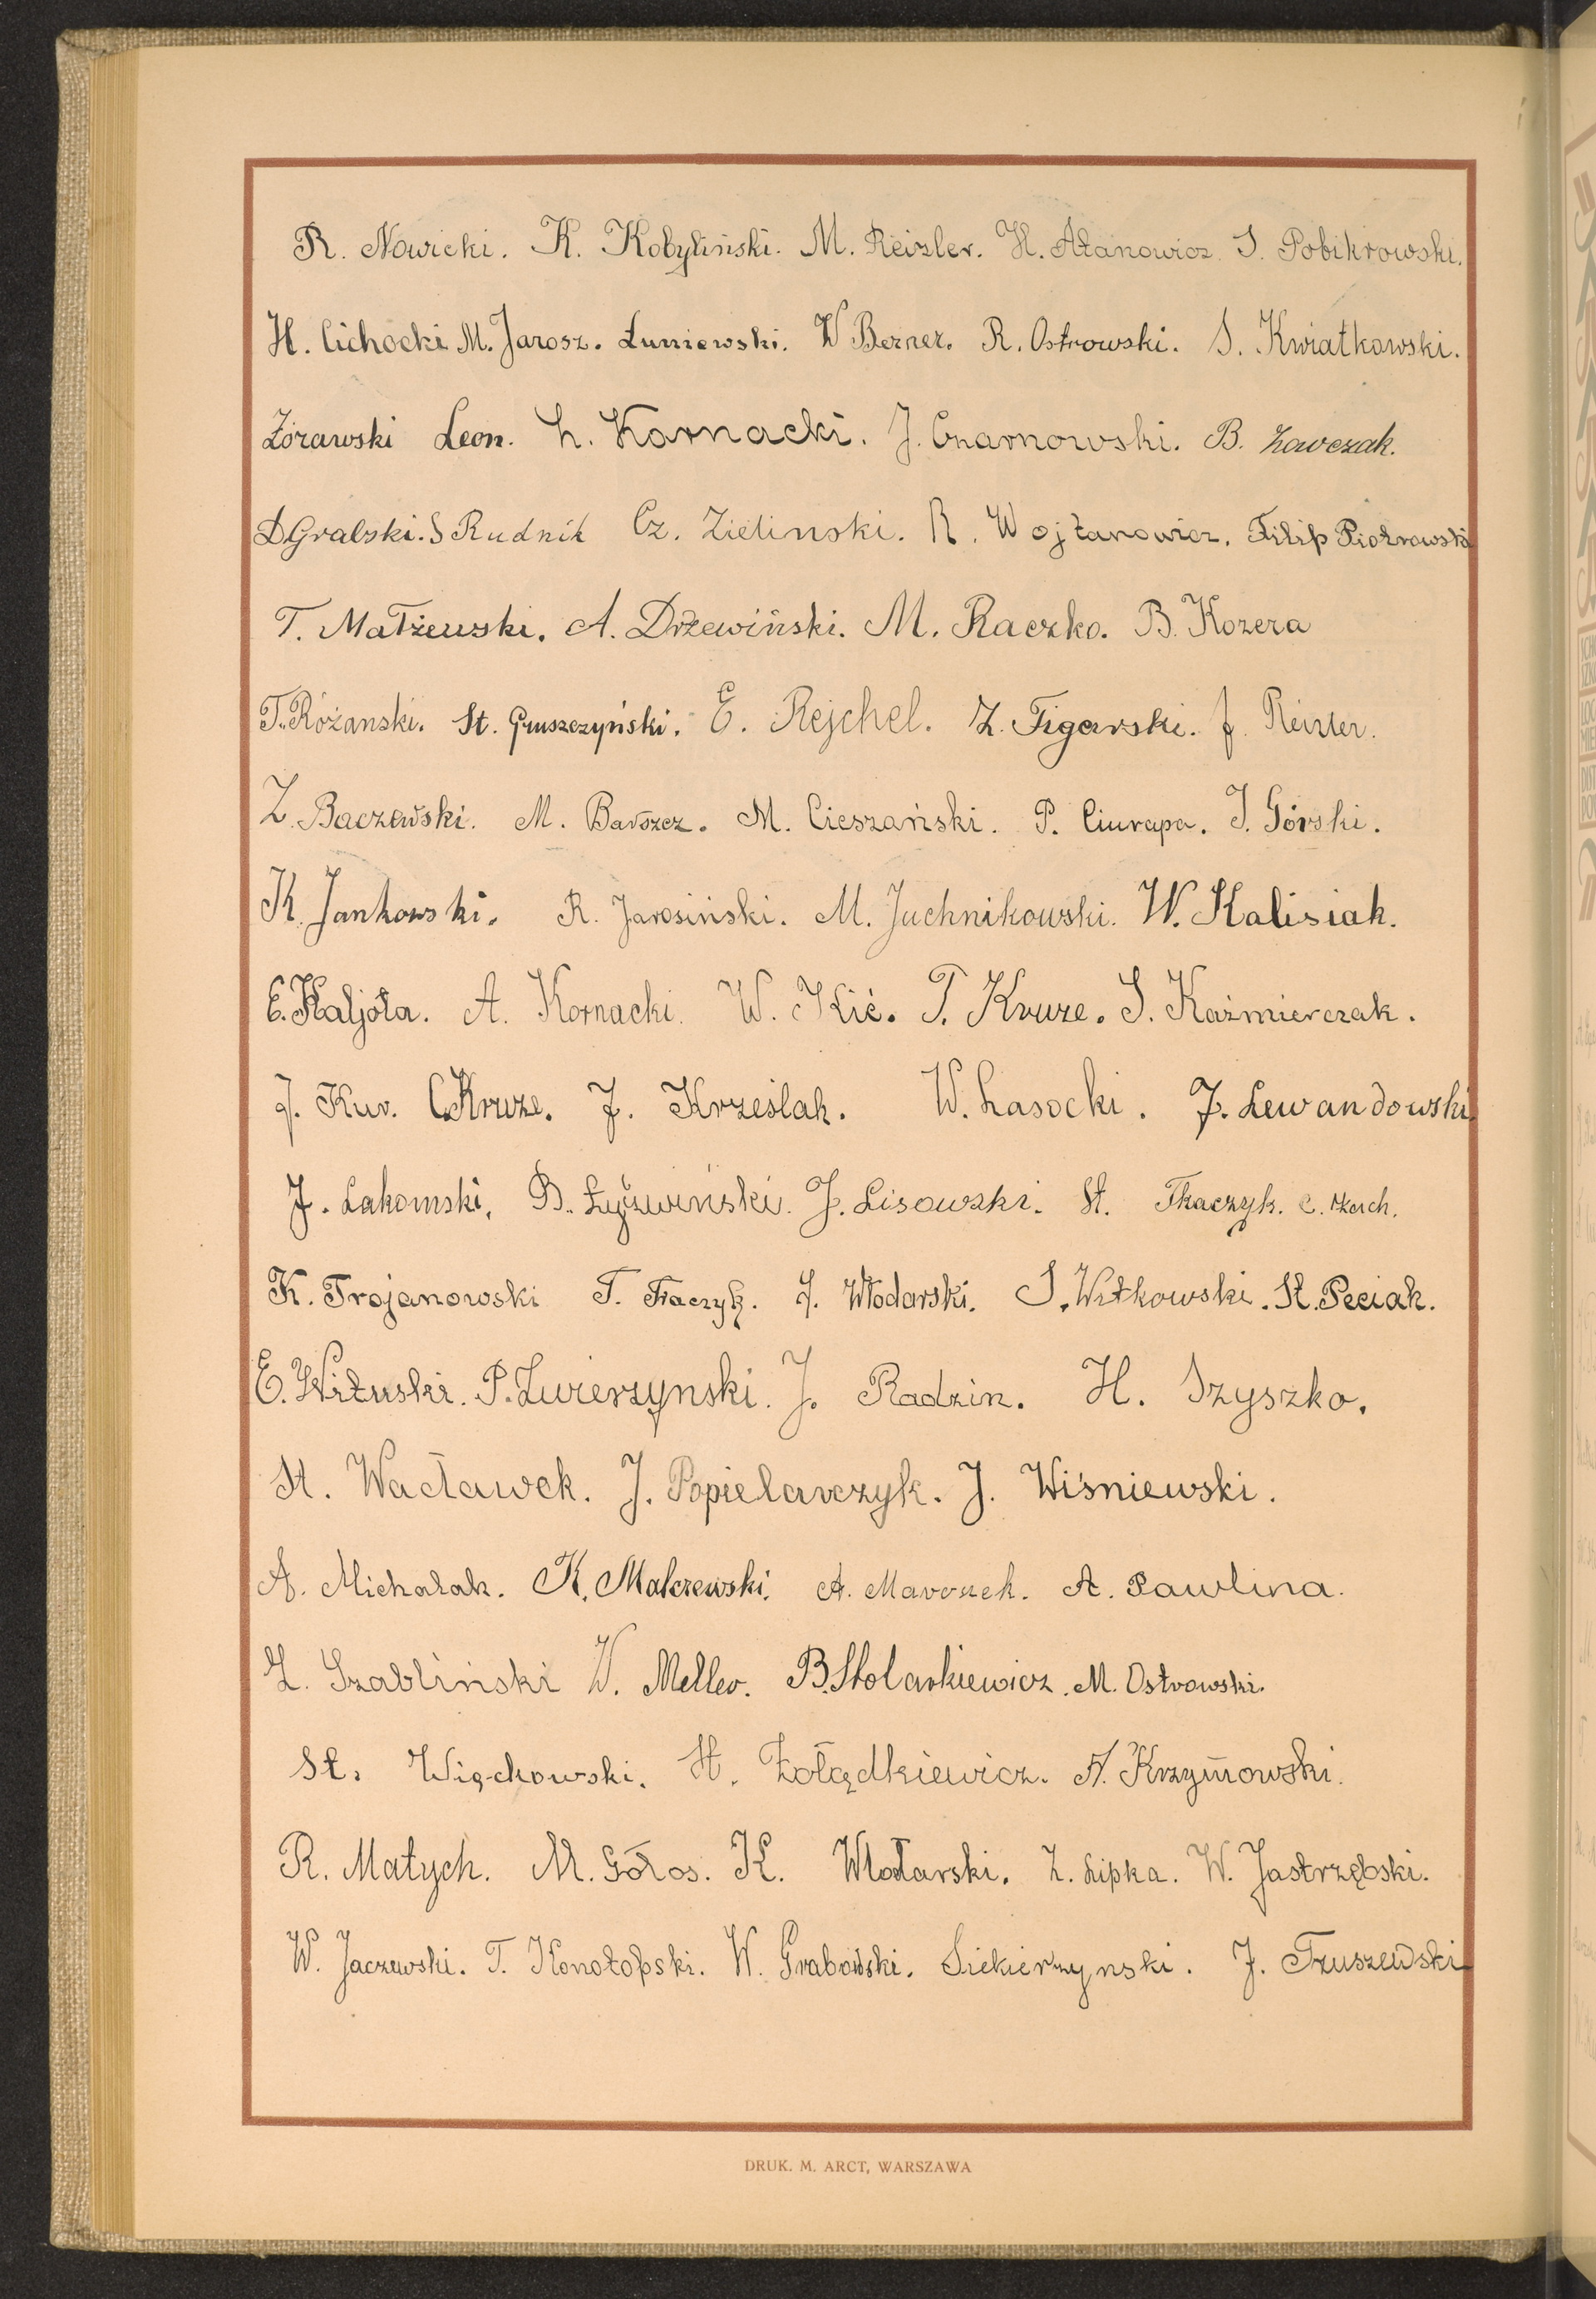 R. Nowicki. K. Kobyliński. M. Reizler. H. Atanowicz. S. Pobikrowski.
H. Cichocki M. Jarosz. Łuniewski. W Berner. R. Ostrowski. S. Kwiatkowski.
Żórawski Leon. L. Karnacki. J. Czarnowski. B. Zawczak.
D Grabski. S Rudnik Cz. Zielinski. R. Wojtanowicz. Filip Piotrowski
T. Małżewski. A. Drzewiński. M. Raczko. B. Kozera
T. Różanski. St. Gruszczyński. E. Rejchel. Z. Figarski. J. Reizler.
Z. Baczewski. M. Barszcz. M. Cieszański. P. Ciurapa. J. Górski.
K. Jankowski. R. Jarosiński. M. Juchnikowski. W. Kalisiak.
E. Kaljota. A. Kornacki. W. Kić. T. Kruze. S. Kaźmierczak.
J. Kur. C. Kruze. J. Krześlak. W. Lasocki. J. Lewandowski
J. Łakomski. B. Łyżwiński. J. Lisowski. St. Tkaczyk.
K. Trojanowski T. Tkaczyk. J. Włodarski. S. Witkowski. St. Peciak.
E. Wituski. P. Zwierzynski. J. Radzin. H. Szyszko.
St. Wacławek. J. Popielarczyk. J. Wiśniewski.
A. Michalak. K. Malczewski. A. Maroszek. A. Pawlina.
Z. Szabliński W. Meller. B. Stolarkiewicz. M. Ostrowski.
St. Więckowski. H. Żołądkiewicz. A. Krzymowski.
R. Małych. M. Gołos. K. Wlotarski. Z. Lipka. W. Jastrzębski.
W. Jaczewski. T. Konotopski. W. Grabowski. Siekierzynski. J. Truszewski
DRUK. M. ARCT, WARSZAWA